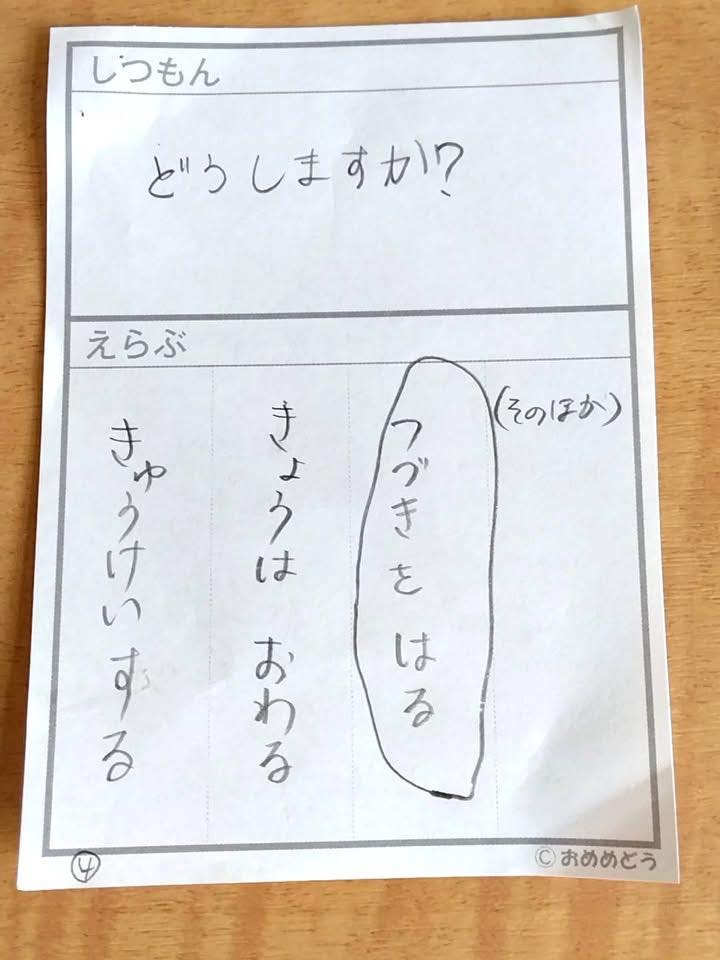 しつもん
どうしますか?
えらぶ
(そのほか)
つづきを はる
きょうは おわる
きゅうけい する
④
©おめめどう